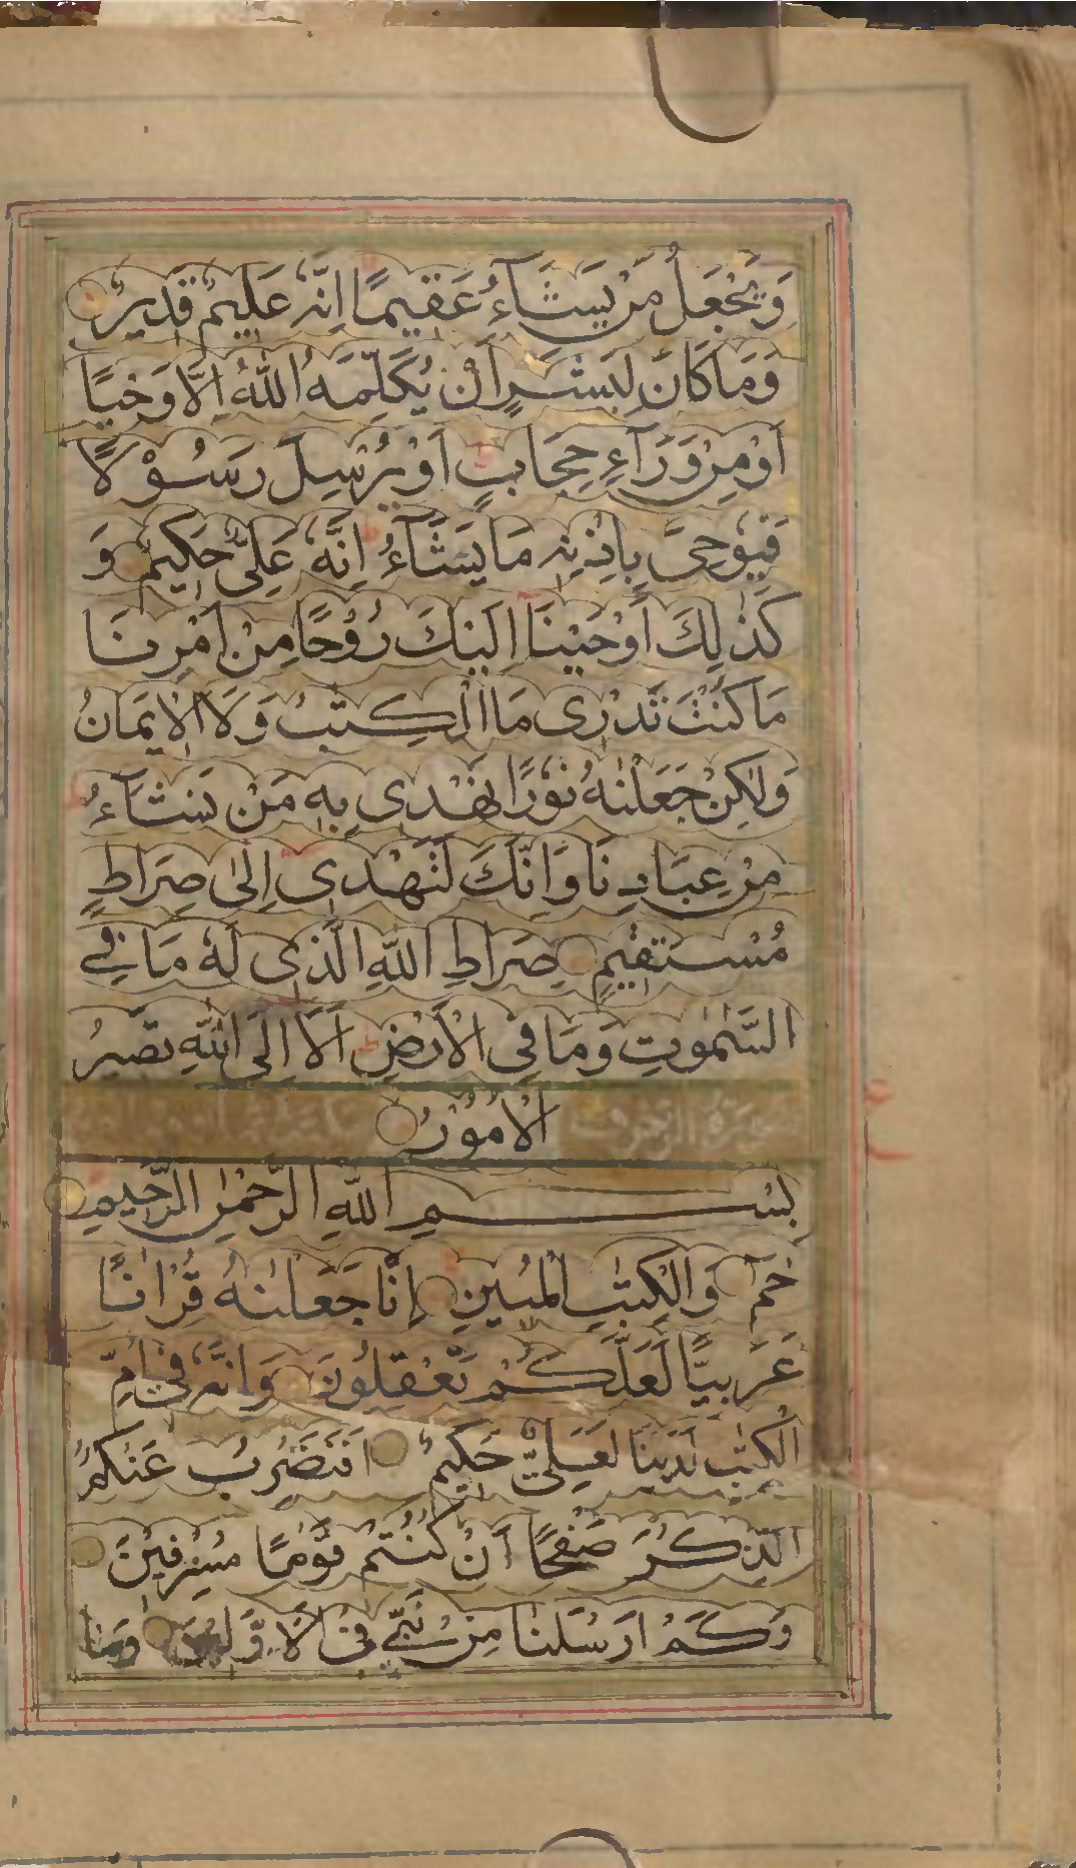 وَيَجْعَلُ مَنْ يَشَآءُ عَقِيمًا اِنَّهٗ عَلِيمٌ قَدِيرٌ
وَمَا كَانَ لِبَشَرٍ اَنْ يُكَلِّمَهُ اللّٰهُ اِلَّا وَحْيًا
اَوْ مِنْ وَرَآءِ حِجَابٍ اَوْ يُرْسِلَ رَسُوْلًا
فَيُوْحِىَ بِاِذْنِهٖ مَا يَشَآءُ اِنَّهٗ عَلِىٌّ حَكِيمٌ وَ
كَذٰلِكَ اَوْحَيْنَا اِلَيْكَ رُوْحًا مِنْ اَمْرِنَا
مَا كُنْتَ تَدْرِى مَا الْكِتٰبُ وَلَا الْاِيْمَانُ
وَلٰكِنْ جَعَلْنٰهُ نُوْرًا نَهْدِى بِهٖ مَنْ نَشَآءُ
مِنْ عِبَادِنَا وَاِنَّكَ لَتَهْدِى اِلٰى صِرَاطٍ
مُسْتَقِيْمٍ صِرَاطِ اللّٰهِ الَّذِى لَهٗ مَا فِى
السَّمٰوٰتِ وَمَا فِى الْاَرْضِ اَلَا اِلَى اللّٰهِ تَصِيرُ
الْاُمُوْرُ سورة الزخرف
بِسْمِ اللّٰهِ الرَّحْمٰنِ الرَّحِيمِ
حٰمٓ وَالْكِتٰبِ الْمُبِينِ اِنَّا جَعَلْنٰهُ قُرْاٰنًا
عَرَبِيًّا لَعَلَّكُمْ تَعْقِلُونَ وَاِنَّهٗ فِى اُمِّ
الْكِتٰبِ لَدَيْنَا لَعَلِىٌّ حَكِيمٌ اَفَنَضْرِبُ عَنْكُمُ
الذِّكْرَ صَفْحًا اَنْ كُنْتُمْ قَوْمًا مُسْرِفِيْنَ
وَكَمْ اَرْسَلْنَا مِنْ نَبِىٍّ فِى الْاَوَّلِيْنَ وَمَا